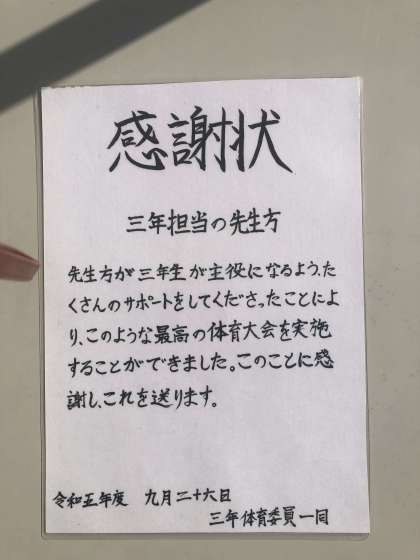 感謝状
三年担当の先生方
先生方が三年生が主役になるよう、た
くさんのサポートをしてくださったことによ
り、このような最高の体育大会を実施
することができました。このことに感
謝し、これを送ります。
令和五年度 九月二十六日
三年体育委員一同